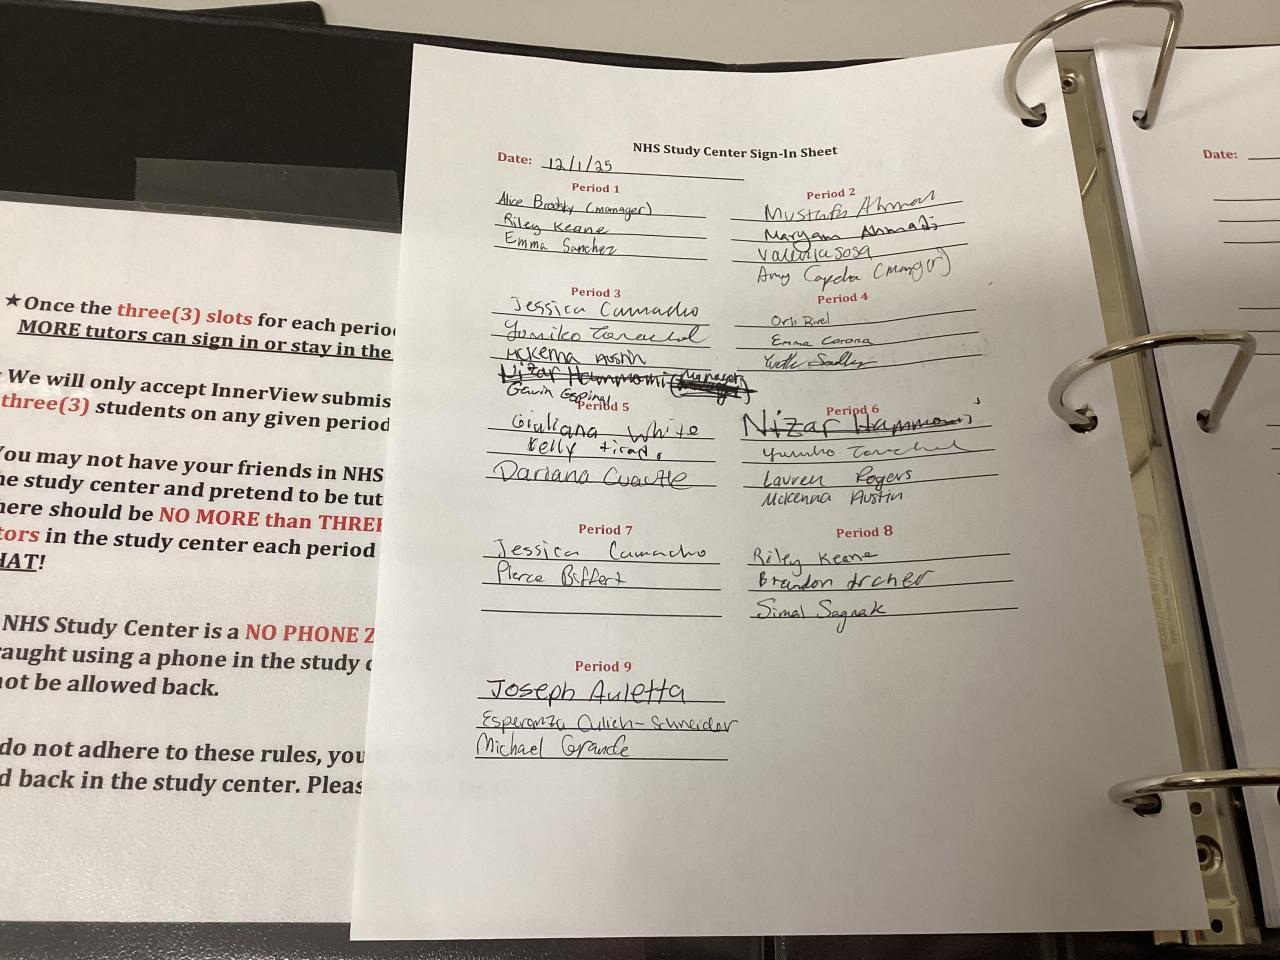 ★Once the three(3) slots for each perio
MORE tutors can sign in or stay in the
We will only accept InnerView submis
three(3) students on any given period
ou may not have your friends in NHS
he study center and pretend to be tut
here should be NO MORE than THREE
tors in the study center each period
HAT!
NHS Study Center is a NO PHONE Z
aught using a phone in the study c
not be allowed back.
do not adhere to these rules, you
d back in the study center. Pleas
NHS Study Center Sign-In Sheet
Date: 12/1/25
Period 1
Alice Brodsky (manager)
Riley Keane
Emma Sanchez
Period 2
Mustafa Ahmad
Maryam Ahmadi
Valentia Sosa
Amy
Period 3
Jessica Camacho
Yumiko
Mckenna Austin
Nizar Hammomi (manager)
Gavin Espinal
Period 4
Orli
Emma Corona
Yvette
Period 5
Giuliana White
Kelly tirado
Dariana Cuautle
Period 6
Nizar Hammomi
Yumiko
Lauren Rogers
Mckenna Austin
Period 7
Jessica Camacho
Pierce Biffert
Period 8
Riley Keane
Brandon Archer
Simal Sagnak
Period 9
Joseph Auletta
Esperanza Culich-Schneider
Michael Grande
Date: